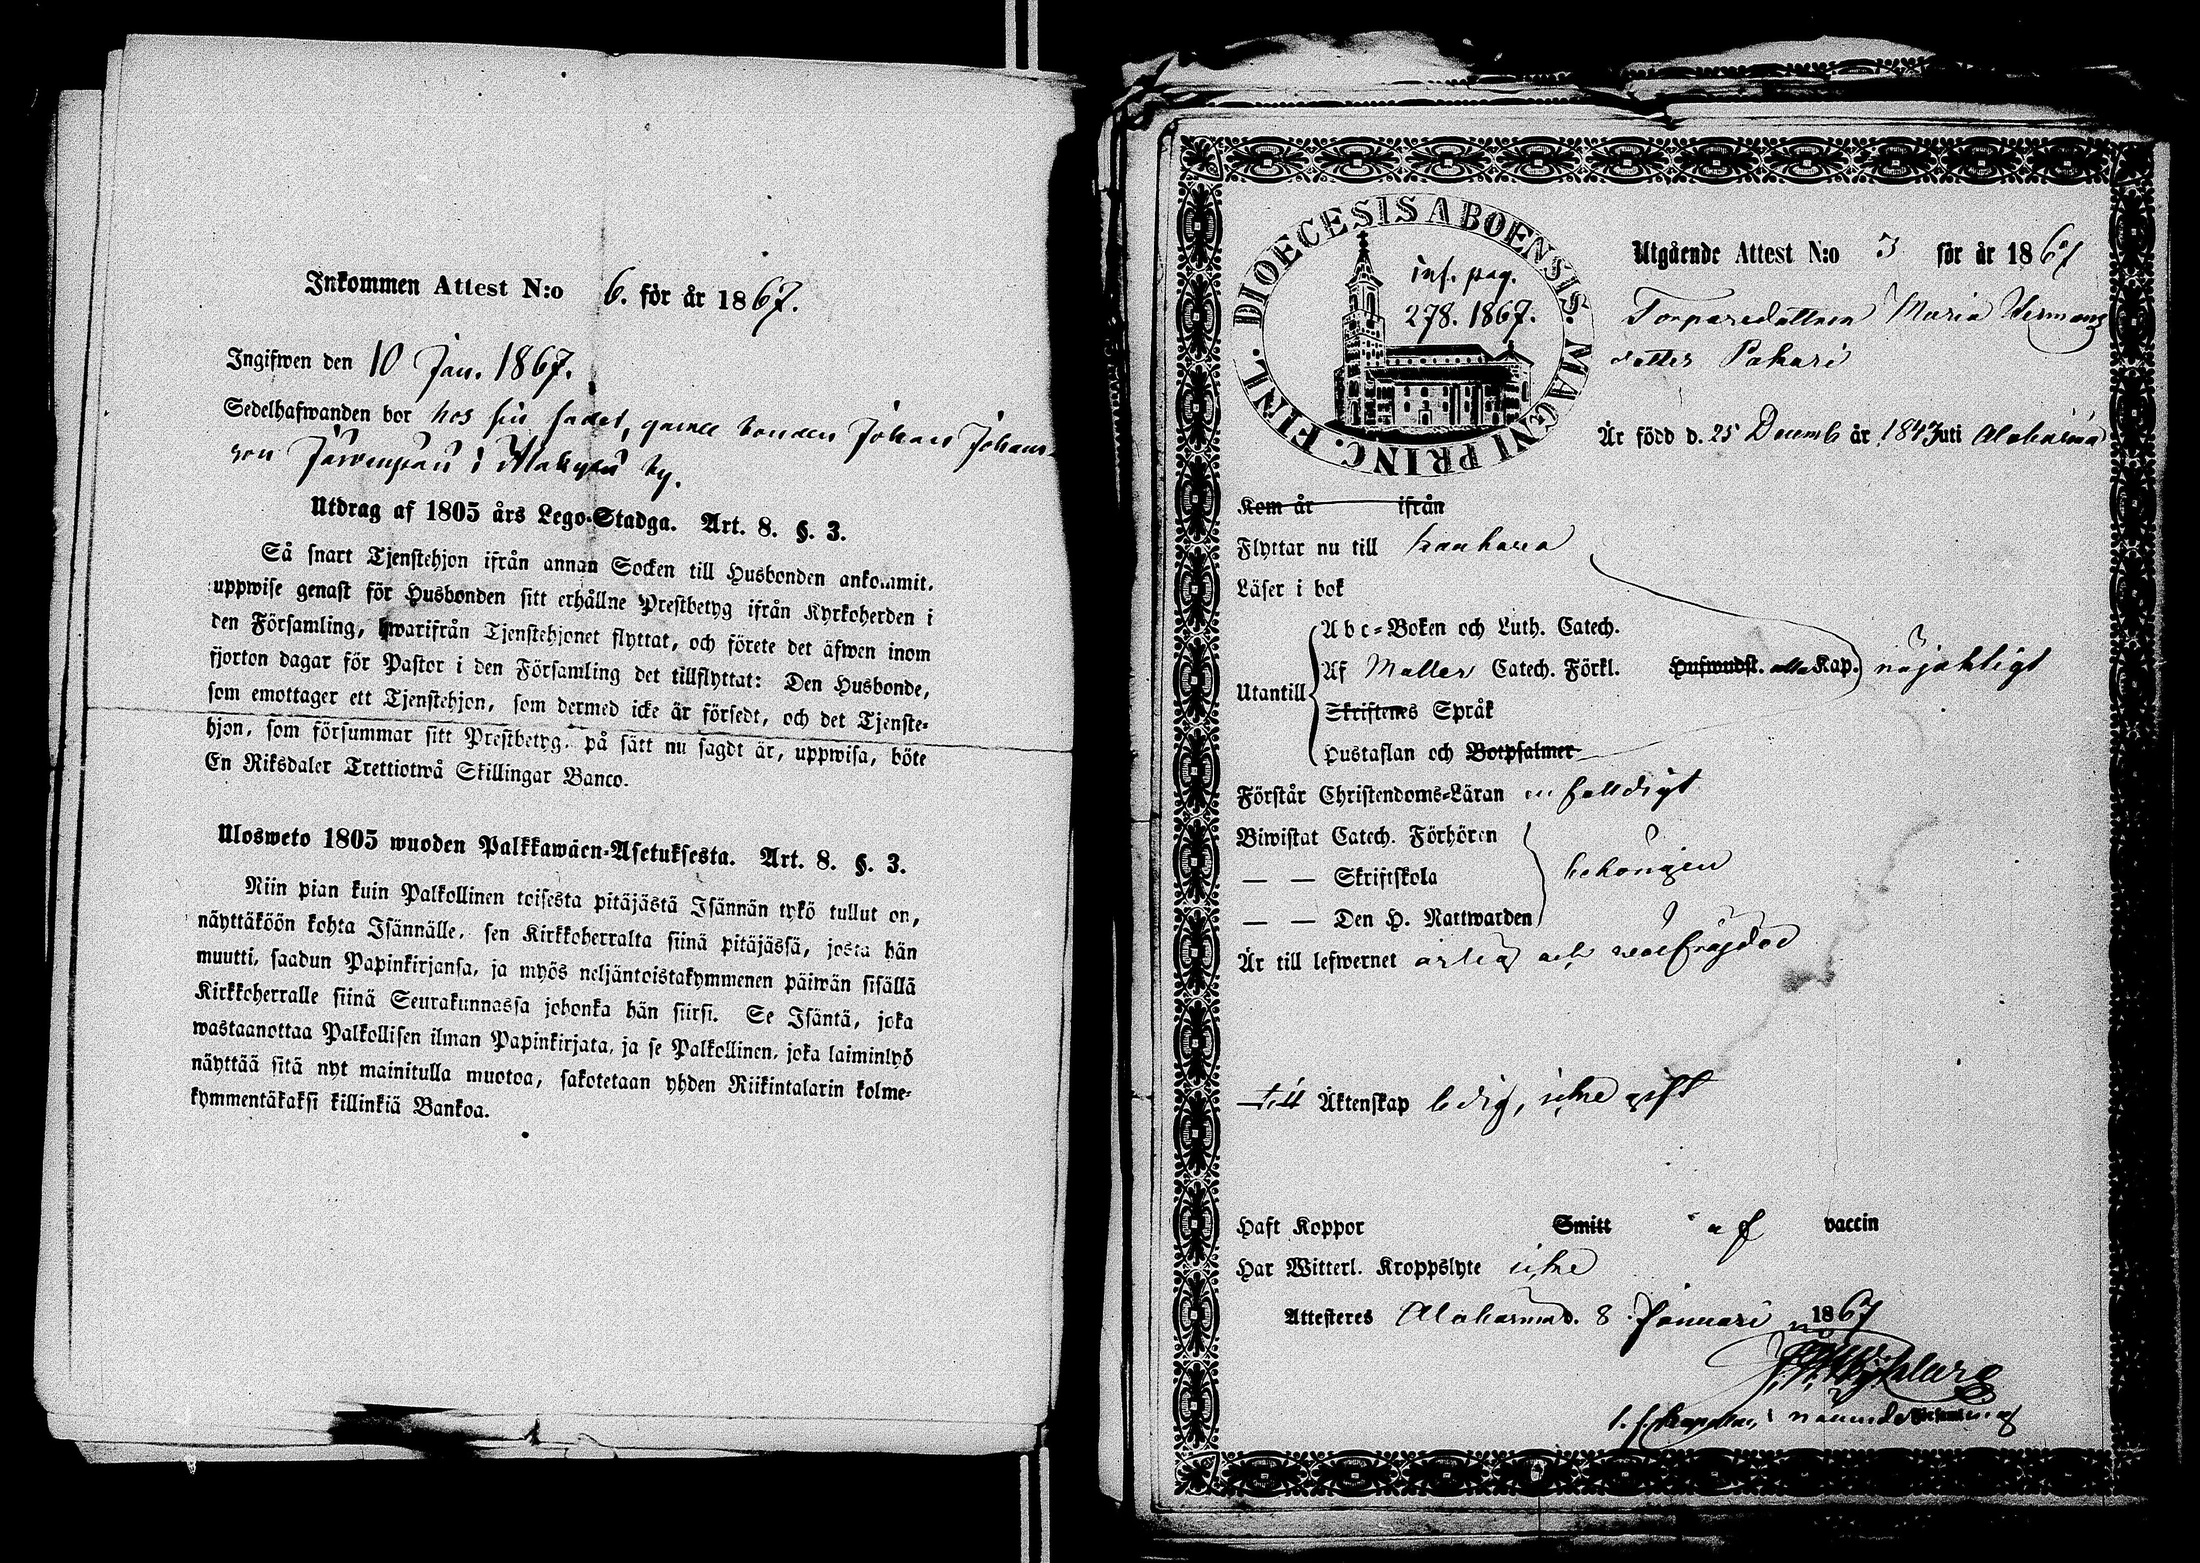 Inkommen Attest N:o 6. för år 1867.
Ingifwen den 10 Jan. 1867.
Sedelhafwanden bor hos sin fader, gamle bonden Johan Johans-
son i by.
Utdrag af 1805 års Lego-Stadga. Art. 8. §. 3.
Så snart Tjenstehjon ifrån annan Socken till Husbonden ankommit,
uppwise genast för Husbonden sitt erhållne Prestbetyg ifrån Kyrkoherden i
den Församling, hwarifrån Tjenstehjonet flyttat, och förete det äfwen inom
fjorton dagar för Pastor i den Församling det tillflyttat: Den Husbonde,
som emottager ett Tjenstehjon, som dermed icke är försedt, och det Tjenste-
hjon, som försummar sitt Prestbetyg, på sätt nu sagdt är, uppwisa, böte
En Riksdaler Trettiotwå Skillingar Banco.
Ulosweto 1805 wuoden Palkkawäen-Asetuksesta. Art. 8. §. 3.
Niin pian kuin Palkollinen toisesta pitäjästä Isännän tykö tullut on,
näyttäköön kohta Isännälle, sen Kirkkoherralta siinä pitäjässä, josta hän
muutti, saadun Papinkirjansa, ja myös neljäntoistakymmenen päiwän sisällä
Kirkkoherralle siinä Seurakunnassa johonka hän siirsi. Se Isäntä, joka
wastaanottaa Palkollisen ilman Papinkirjata, ja se Palkollinen, joka laiminlyö
näyttää sitä nyt mainitulla muotoa, sakotetaan yhden Riikintalarin kolme-
kymmentäkaksi killinkiä Bankoa.
DIOECESIS ABOENSIS. MAGNI PRINC. FINL.
inf. pag.
278. 1867.
Utgående Attest N:o 3 för år 1867
Torparedottren Maria Hermans
dotter Pakari
Är född d. 25 Decemb år 1843 uti Alahärmä
Kom år ifrån
Flyttar nu till Kauhava
Läser i bok
Utantill
Abc-Boken och Luth. Catech.
Af Möllers Catech. Förkl. Hufwudst. alla Kap. nöjaktigt
Skriftenes Språk
Hustaflan och Botpsalmer
Förstår Christendoms-Läran enfaldigt
Biwistat Catech. Förhören
— — Skriftskola behörigen
— — Den H. Nattwarden
Är till lefwernet ärlig och wälfrägdad
till Äktenskap ledig, icke gift
Haft Koppor Smitt af vaccin
Har Witterl. Kroppslyte icke
Attesteras Alahärmä d. 8 Januari 1867